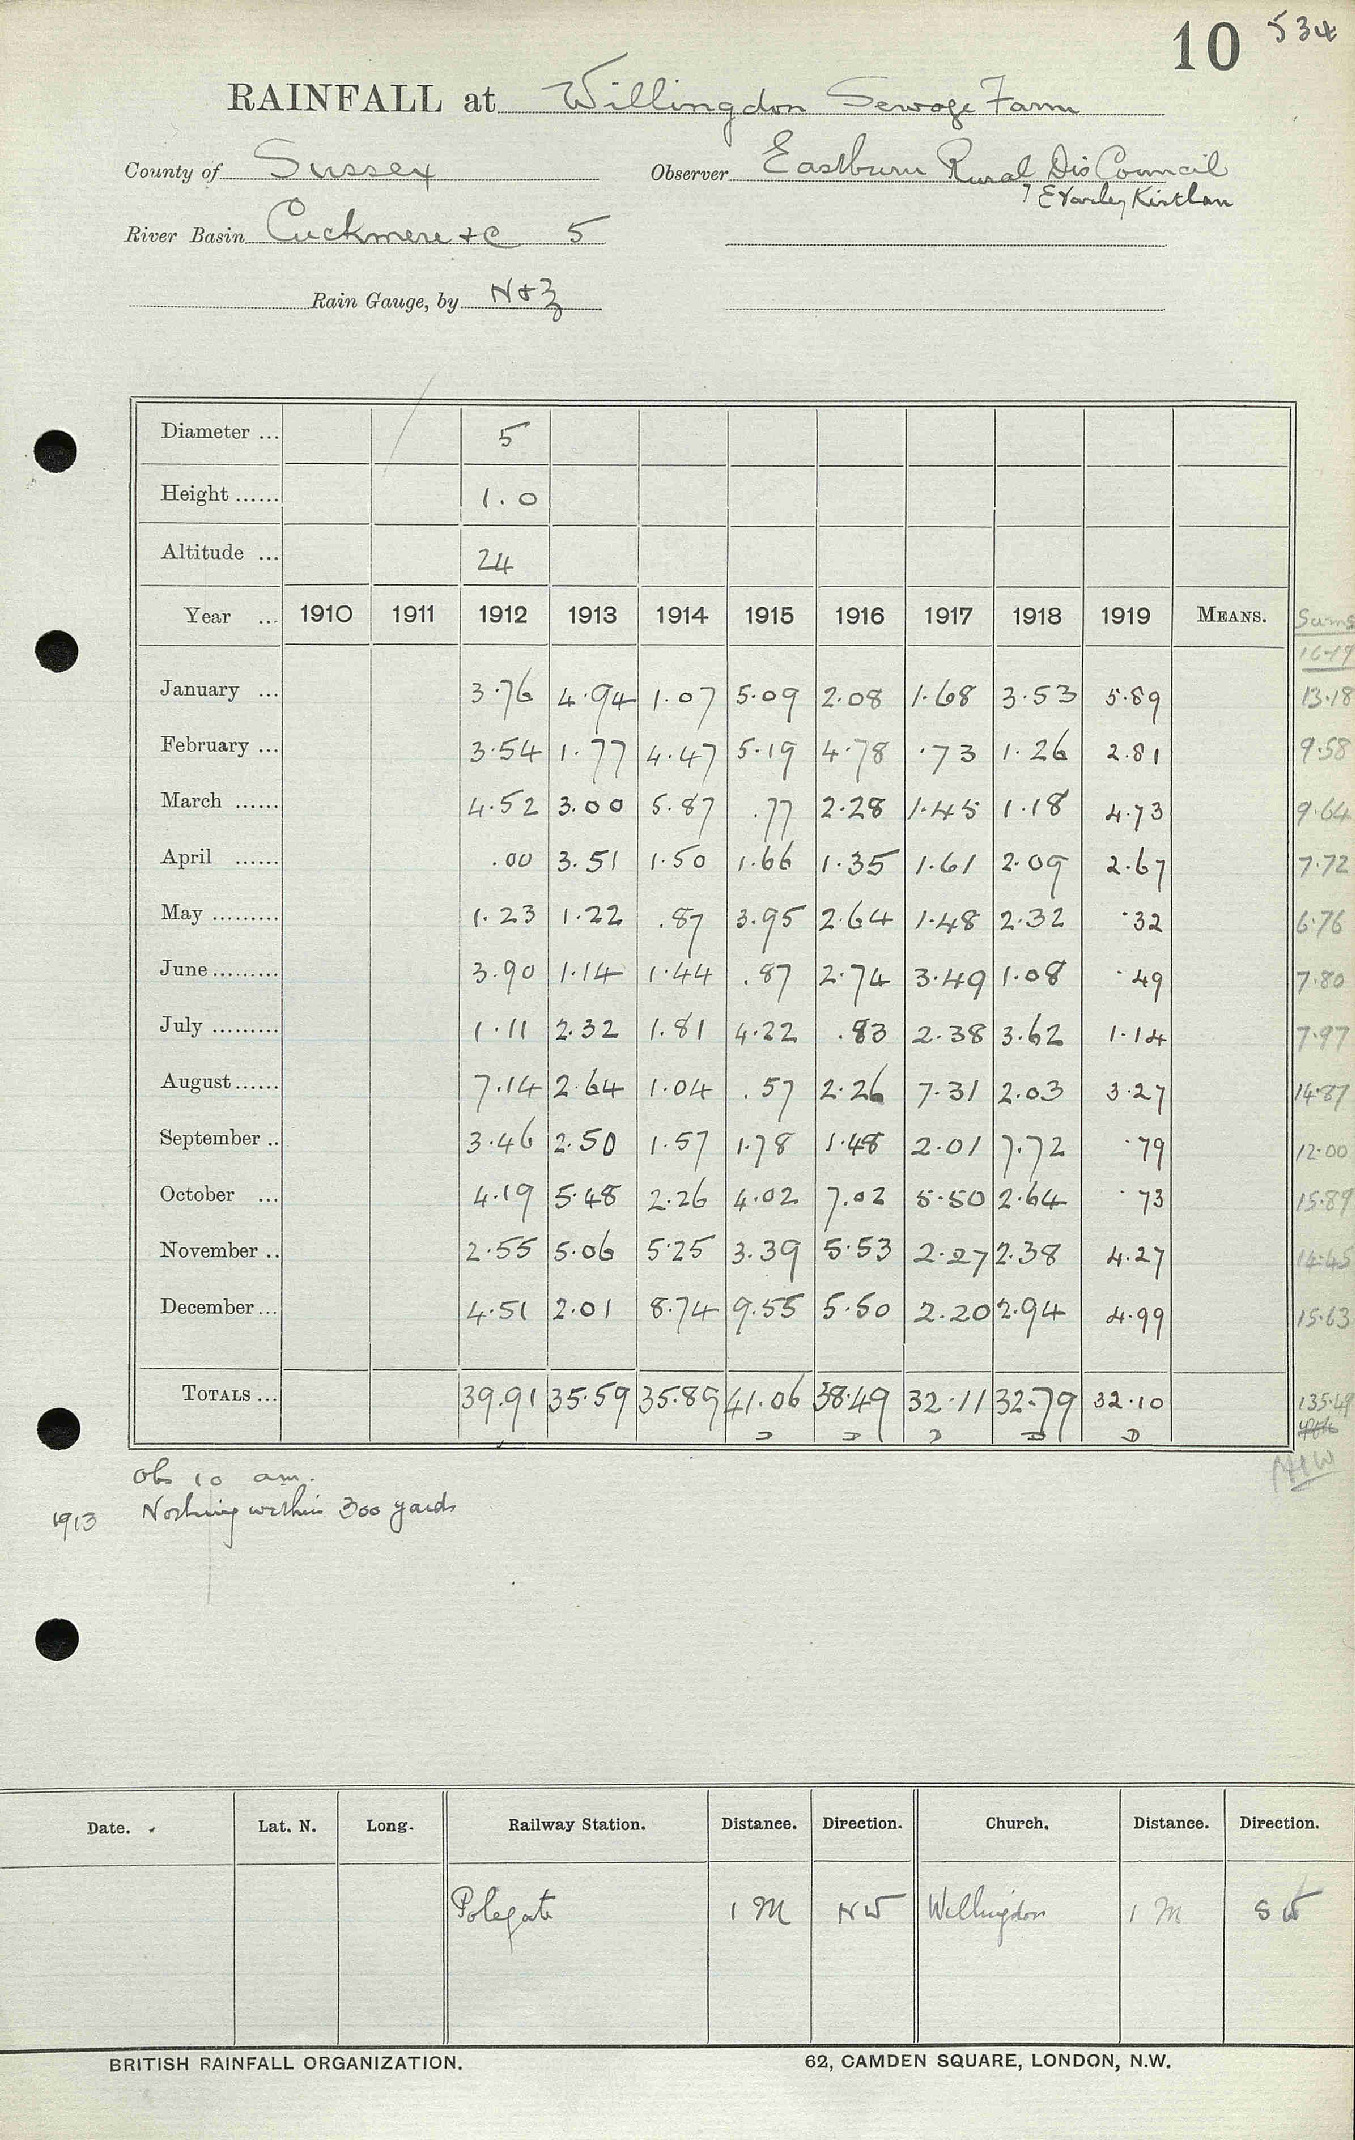 10 534
RAINFALL at Willingdon Sewage Farm
County of Sussex Observer Eastburn Rural Dis Council
T E Yarley Kirtlan
River Basin Cuckmere &c 5
Rain Gauge, by N & Z
Diameter ... 5
Height ...... 1.0
Altitude ... 24
Year ... 1910 1911 1912 1913 1914 1915 1916 1917 1918 1919 MEANS. Sums
16-19
January ... 3.76 4.94 1.07 5.09 2.08 1.68 3.53 5.89 13.18
February ... 3.54 1.77 4.47 5.19 4.78 .73 1.26 2.81 9.58
March ...... 4.52 3.00 5.87 .77 2.28 1.45 1.18 4.73 9.64
April ...... .00 3.51 1.50 1.66 1.35 1.61 2.09 2.67 7.72
May ......... 1.23 1.22 .87 3.95 2.64 1.48 2.32 .32 6.76
June ......... 3.90 1.14 1.44 .87 2.74 3.49 1.08 .49 7.80
July ......... 1.11 2.32 1.81 4.22 .83 2.38 3.62 1.14 7.97
August ...... 7.14 2.64 1.04 .57 2.26 7.31 2.03 3.27 14.87
September .. 3.46 2.50 1.57 1.78 1.48 2.01 7.72 .79 12.00
October ... 4.19 5.48 2.26 4.02 7.02 5.50 2.64 .73 15.89
November .. 2.55 5.06 5.25 3.39 5.53 2.27 2.38 4.27 14.45
December ... 4.51 2.01 8.74 9.55 5.50 2.20 2.94 4.99 15.63
TOTALS ... 39.91 35.59 35.89 41.06 38.49 32.11 32.79 32.10 135.49
D D D D D
Ob 10 am. AHW
1913 Nothing within 300 yards
Date. Lat. N. Long. Railway Station. Distance. Direction. Church. Distance. Direction.
Polegate 1 M NW Willingdon 1 M SW
BRITISH RAINFALL ORGANIZATION. 62, CAMDEN SQUARE, LONDON, N.W.